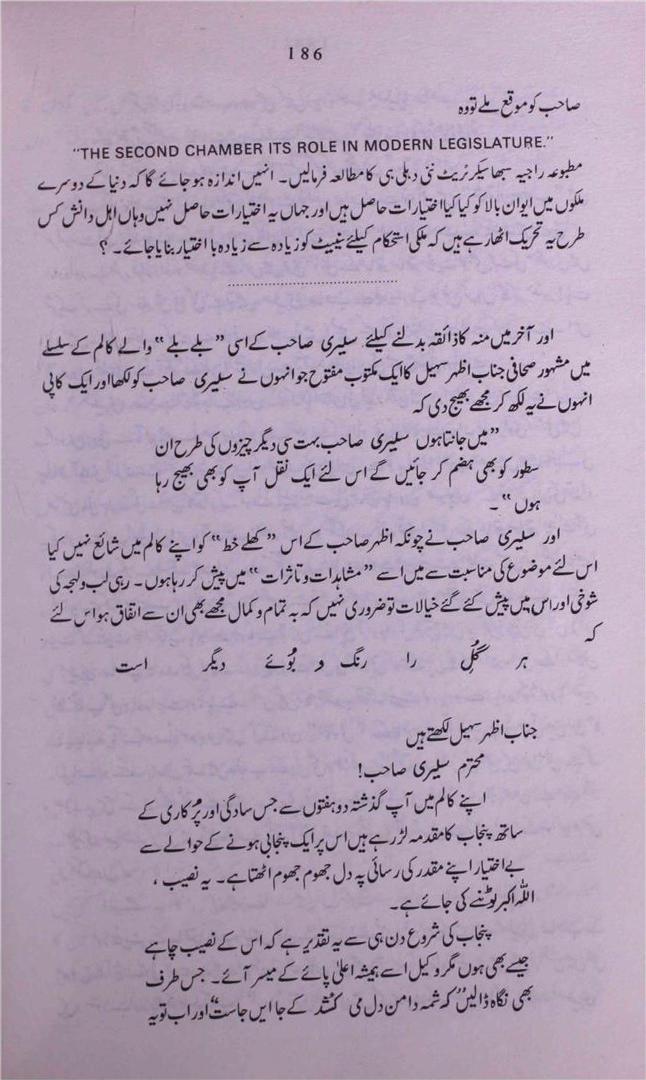 186
صاحب کو موقع ملے تو وہ
"THE SECOND CHAMBER ITS ROLE IN MODERN LEGISLATURE."
مطبوعہ راجیہ سبھا سیکرٹریٹ نئی دہلی ہی کا مطالعہ فرمالیں۔ انہیں اندازہ ہو جائے گا کہ دنیا کے دوسرے
ملکوں میں ایوان بالا کو کیا کیا اختیارات حاصل ہیں اور جہاں یہ اختیارات حاصل نہیں وہاں اہل دانش کس
طرح یہ تحریک اٹھا رہے ہیں کہ ملکی استحکام کیلئے سینیٹ کو زیادہ سے زیادہ با اختیار بنایا جائے۔ ؟
اور آخر میں منہ کا ذائقہ بدلنے کیلئے سلیری صاحب کے اسی “بلے بلے” والے کالم کے سلسلے
میں مشہور صحافی جناب اظہر سہیل کا ایک مکتوب مفتوح جو انہوں نے سلیری صاحب کو لکھا اور ایک کاپی
انہوں نے یہ لکھ کر مجھے بھیج دی کہ
“میں جانتا ہوں سلیری صاحب بہت سی دیگر چیزوں کی طرح ان
سطور کو بھی ہضم کر جائیں گے اس لئے ایک نقل آپ کو بھی بھیج رہا
ہوں”۔
اور سلیری صاحب نے چونکہ اظہر صاحب کے اس “کھلے خط” کو اپنے کالم میں شائع نہیں کیا
اس لئے موضوع کی مناسبت سے میں اسے “مشاہدات و تاثرات” میں پیش کر رہا ہوں۔ رہی لب و لہجہ کی
شوخی اور اس میں پیش کئے گئے خیالات تو ضروری نہیں کہ بہ تمام و کمال مجھے بھی ان سے اتفاق ہو اس لئے
کہ
ہر گُلِ را رنگ و بُوئے دیگر است
جناب اظہر سہیل لکھتے ہیں
محترم سلیری صاحب!
اپنے کالم میں آپ گذشتہ دو ہفتوں سے جس سادگی اور پُرکاری کے
ساتھ پنجاب کا مقدمہ لڑ رہے ہیں اس پر ایک پنجابی ہونے کے حوالے سے
بے اختیار اپنے مقدر کی رسائی پہ دل جھوم جھوم اٹھتا ہے۔ یہ نصیب ،
اللہ اکبر لوٹنے کی جائے ہے۔
پنجاب کی شروع دن ہی سے یہ تقدیر ہے کہ اس کے نصیب چاہے
جیسے بھی ہوں مگر وکیل اسے ہمیشہ اعلیٰ پائے کے میسر آئے۔ جس طرف
بھی نگاہ ڈالیں “کہ شمہ دامن دل می کشد کے جا ایں جاست” اور اب تو یہ